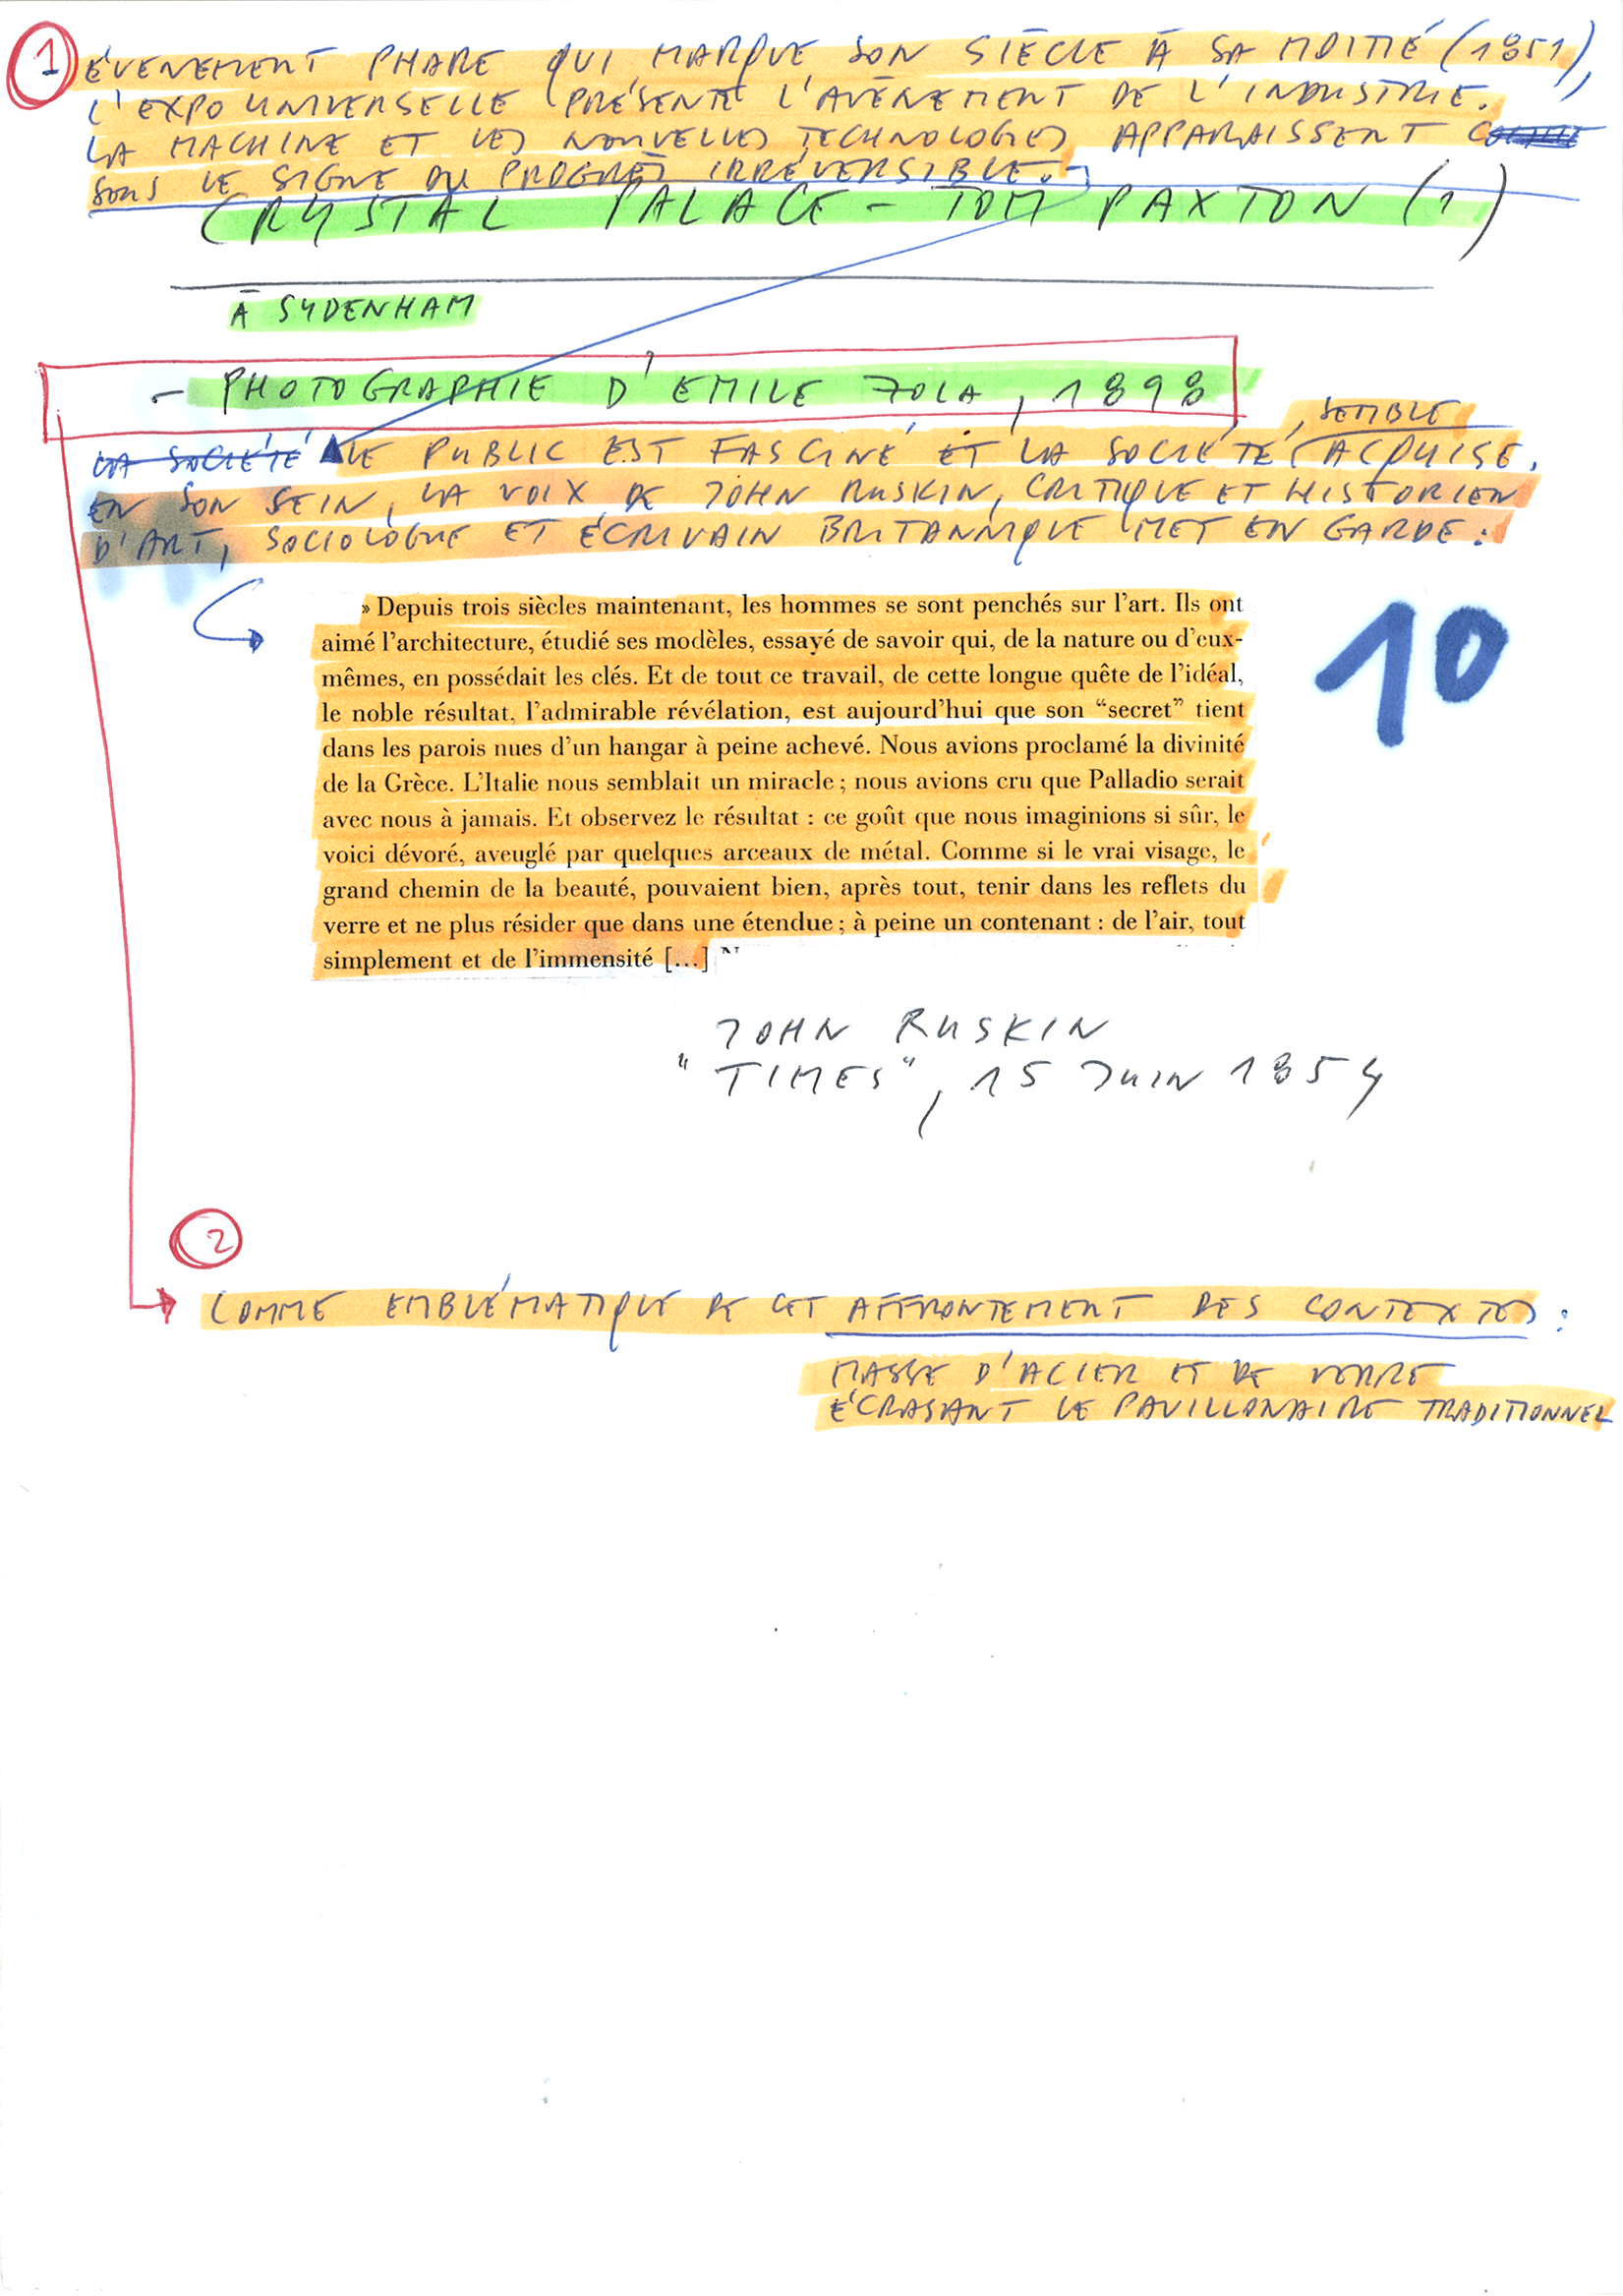 1 ÉVENEMENT PHARE QUI MARQUE SON SIÈCLE À SA MOITIÉ (1851),
L'EXPO UNIVERSELLE PRÉSENTE L'AVÈNEMENT DE L'INDUSTRIE.
LA MACHINE ET LES NOUVELLES TECHNOLOGIES APPARAISSENT
SOUS LE SIGNE DU PROGRÈS IRRÉVERSIBLE.
CRYSTAL PALACE – TOM PAXTON (1)
À SYDENHAM
– PHOTOGRAPHIE D'EMILE ZOLA, 1898
, SEMBLE
LA SOCIÉTÉ LE PUBLIC EST FASCINÉ ET LA SOCIÉTÉ ACQUISE.
EN SON SEIN, LA VOIX DE JOHN RUSKIN, CRITIQUE ET HISTORIEN
D'ART, SOCIOLOGUE ET ÉCRIVAIN BRITANNIQUE MET EN GARDE :
» Depuis trois siècles maintenant, les hommes se sont penchés sur l'art. Ils ont
aimé l'architecture, étudié ses modèles, essayé de savoir qui, de la nature ou d'eux-
mêmes, en possédait les clés. Et de tout ce travail, de cette longue quête de l'idéal,
le noble résultat, l'admirable révélation, est aujourd'hui que son “secret” tient
dans les parois nues d'un hangar à peine achevé. Nous avions proclamé la divinité
de la Grèce. L'Italie nous semblait un miracle ; nous avions cru que Palladio serait
avec nous à jamais. Et observez le résultat : ce goût que nous imaginions si sûr, le
voici dévoré, aveuglé par quelques arceaux de métal. Comme si le vrai visage, le
grand chemin de la beauté, pouvaient bien, après tout, tenir dans les reflets du
verre et ne plus résider que dans une étendue ; à peine un contenant : de l'air, tout
simplement et de l'immensité [...]
10
JOHN RUSKIN
"TIMES", 15 JUIN 1854
2
COMME EMBLÉMATIQUE DE CET AFFRONTEMENT DES CONTEXTES :
MASSE D'ACIER ET DE VERRE
ÉCRASANT LE PAVILLONAIRE TRADITIONNEL